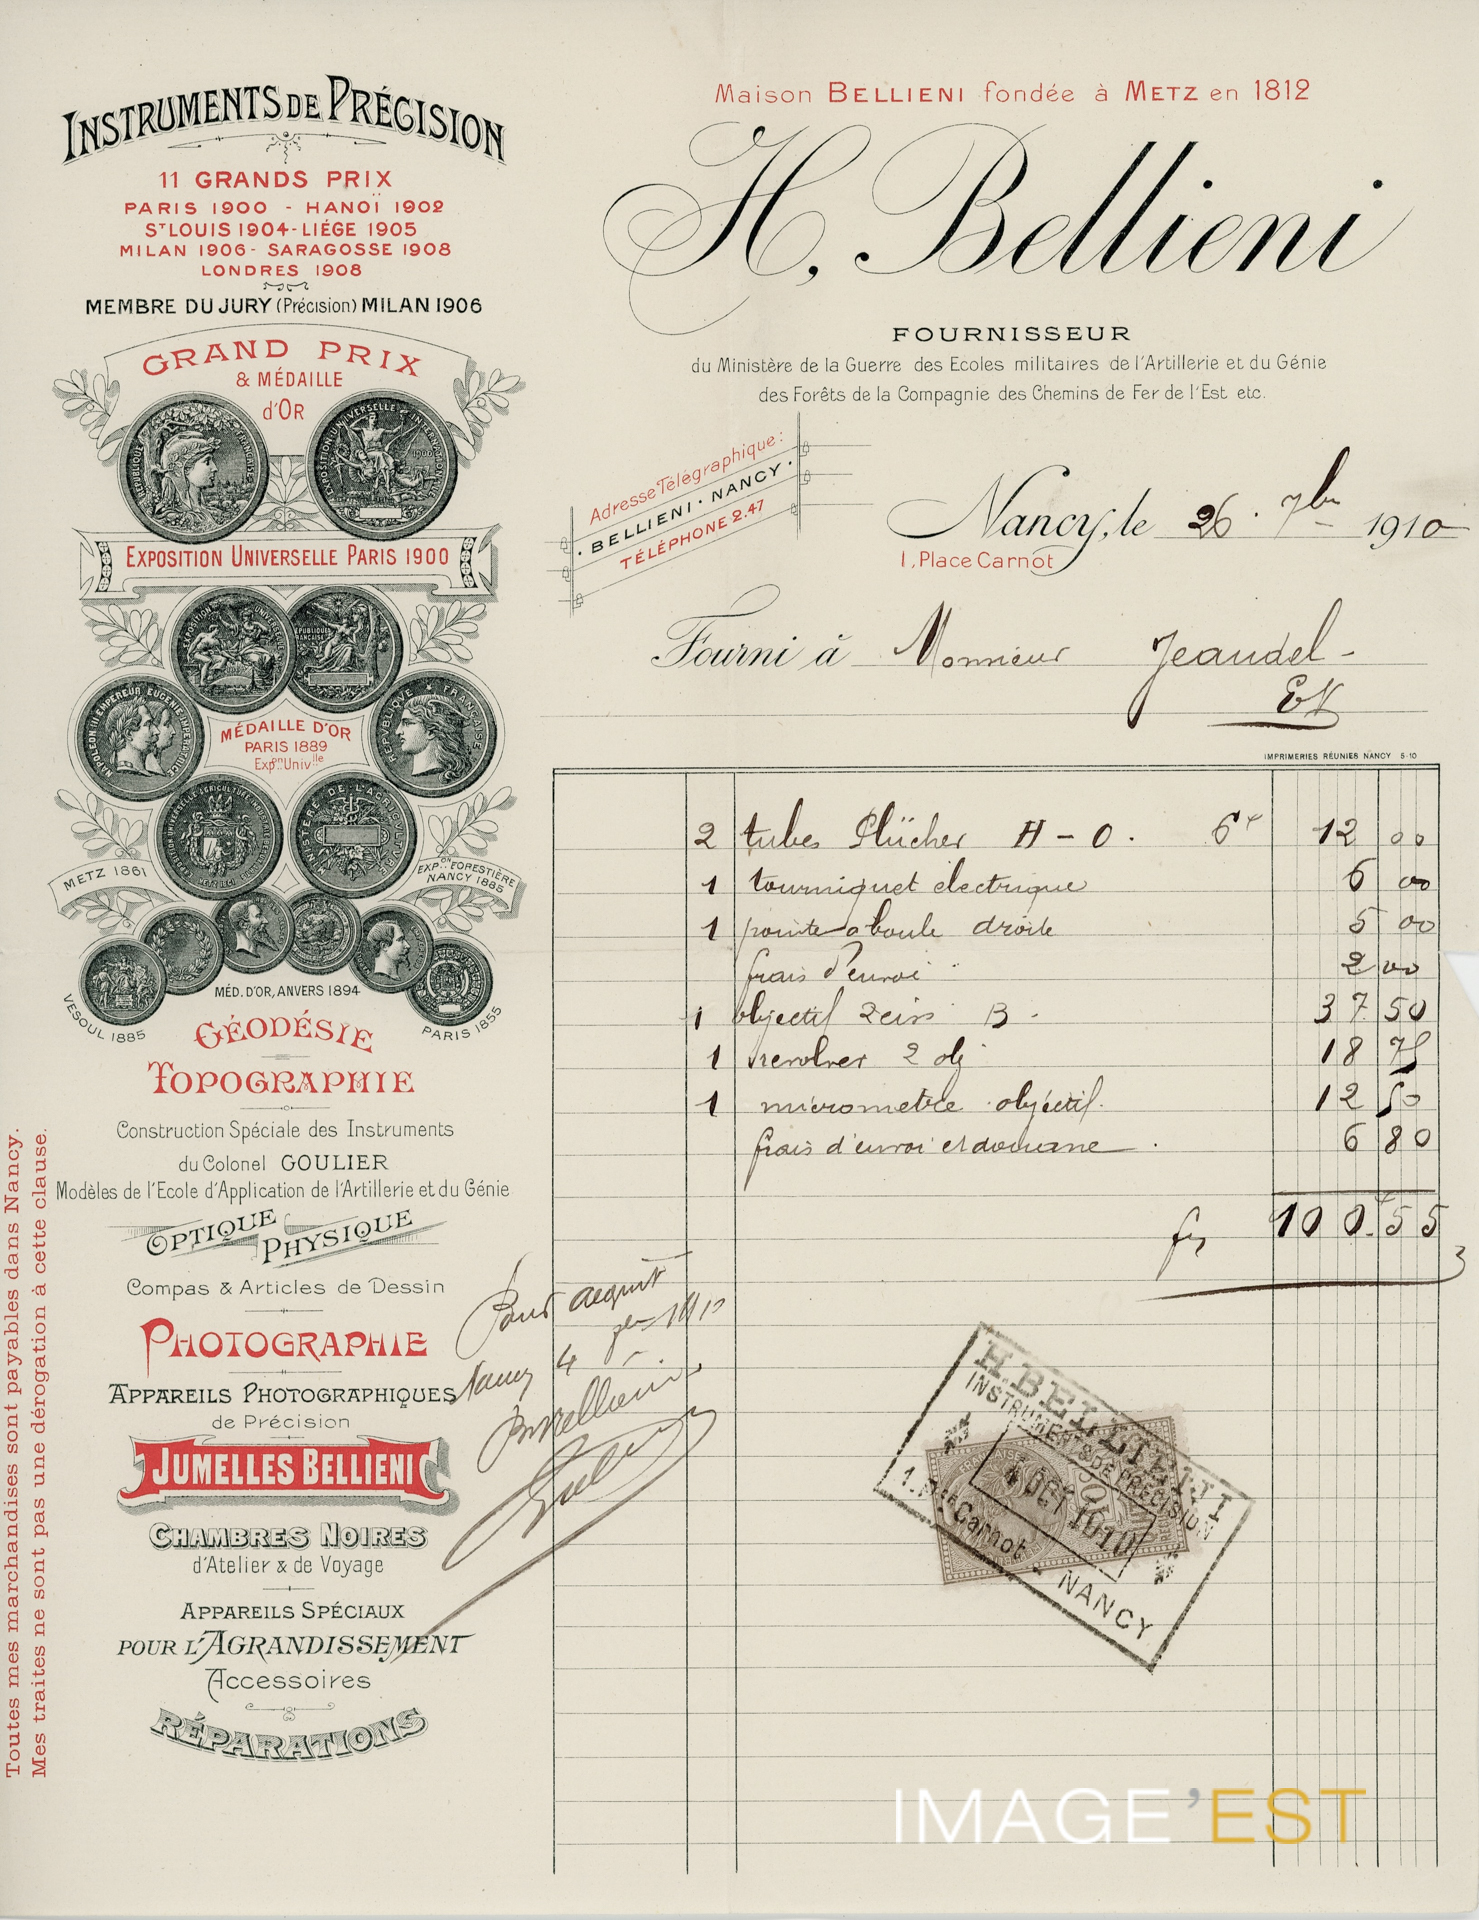 INSTRUMENTS DE PRÉCISION
11 GRANDS PRIX
PARIS 1900 - HANOÏ 1902
ST LOUIS 1904 - LIÉGE 1905
MILAN 1906 - SARAGOSSE 1908
LONDRES 1908
MEMBRE DU JURY (Précision) MILAN 1906
GRAND PRIX
& MÉDAILLE
d'OR
EXPOSITION UNIVERSELLE PARIS 1900
MÉDAILLE D'OR
PARIS 1889
Expon Univlle
METZ 1861
EXPon FORESTIÈRE
NANCY 1885
MÉD. D'OR, ANVERS 1894
VESOUL 1885
PARIS 1855
GÉODÉSIE
TOPOGRAPHIE
Construction Spéciale des Instruments
du Colonel GOULIER
Modèles de l'Ecole d'Application de l'Artillerie et du Génie
OPTIQUE PHYSIQUE
Compas & Articles de Dessin
PHOTOGRAPHIE
APPAREILS PHOTOGRAPHIQUES
de Précision
JUMELLES BELLIENI
CHAMBRES NOIRES
d'Atelier & de Voyage
APPAREILS SPÉCIAUX
POUR L'AGRANDISSEMENT
Accessoires
RÉPARATIONS
Toutes mes marchandises sont payables dans Nancy.
Mes traites ne sont pas une dérogation à cette clause.
Maison BELLIENI fondée à METZ en 1812
H. Bellieni
FOURNISSEUR
du Ministère de la Guerre des Ecoles militaires de l'Artillerie et du Génie
des Forêts de la Compagnie des Chemins de Fer de l'Est etc.
Adresse Télégraphique:
BELLIENI · NANCY ·
TÉLÉPHONE 2.47
Nancy, le 26 7bre 1910
1, Place Carnot
Fourni à Monsieur Jeaudel -
EV
IMPRIMERIES RÉUNIES NANCY 5-10
2 tubes Plücher H - O. 6f 12 00
1 tourniquet électrique 6 00
1 pointe a boule droite 5 00
frais d'envoi 2 00
1 objectif Zeiss B - 37 50
1 revolver 2 obj 18 75
1 micrometre objectif. 12 50
frais d'envoi et douane 6 80
fs 100.55
Pour acquit
Nancy 4
Bellieni
H. BELLIENI
INSTRUMENTS DE PRÉCISION
4 OCT 1910
1. Pce Carnot - NANCY
IMAGE'EST